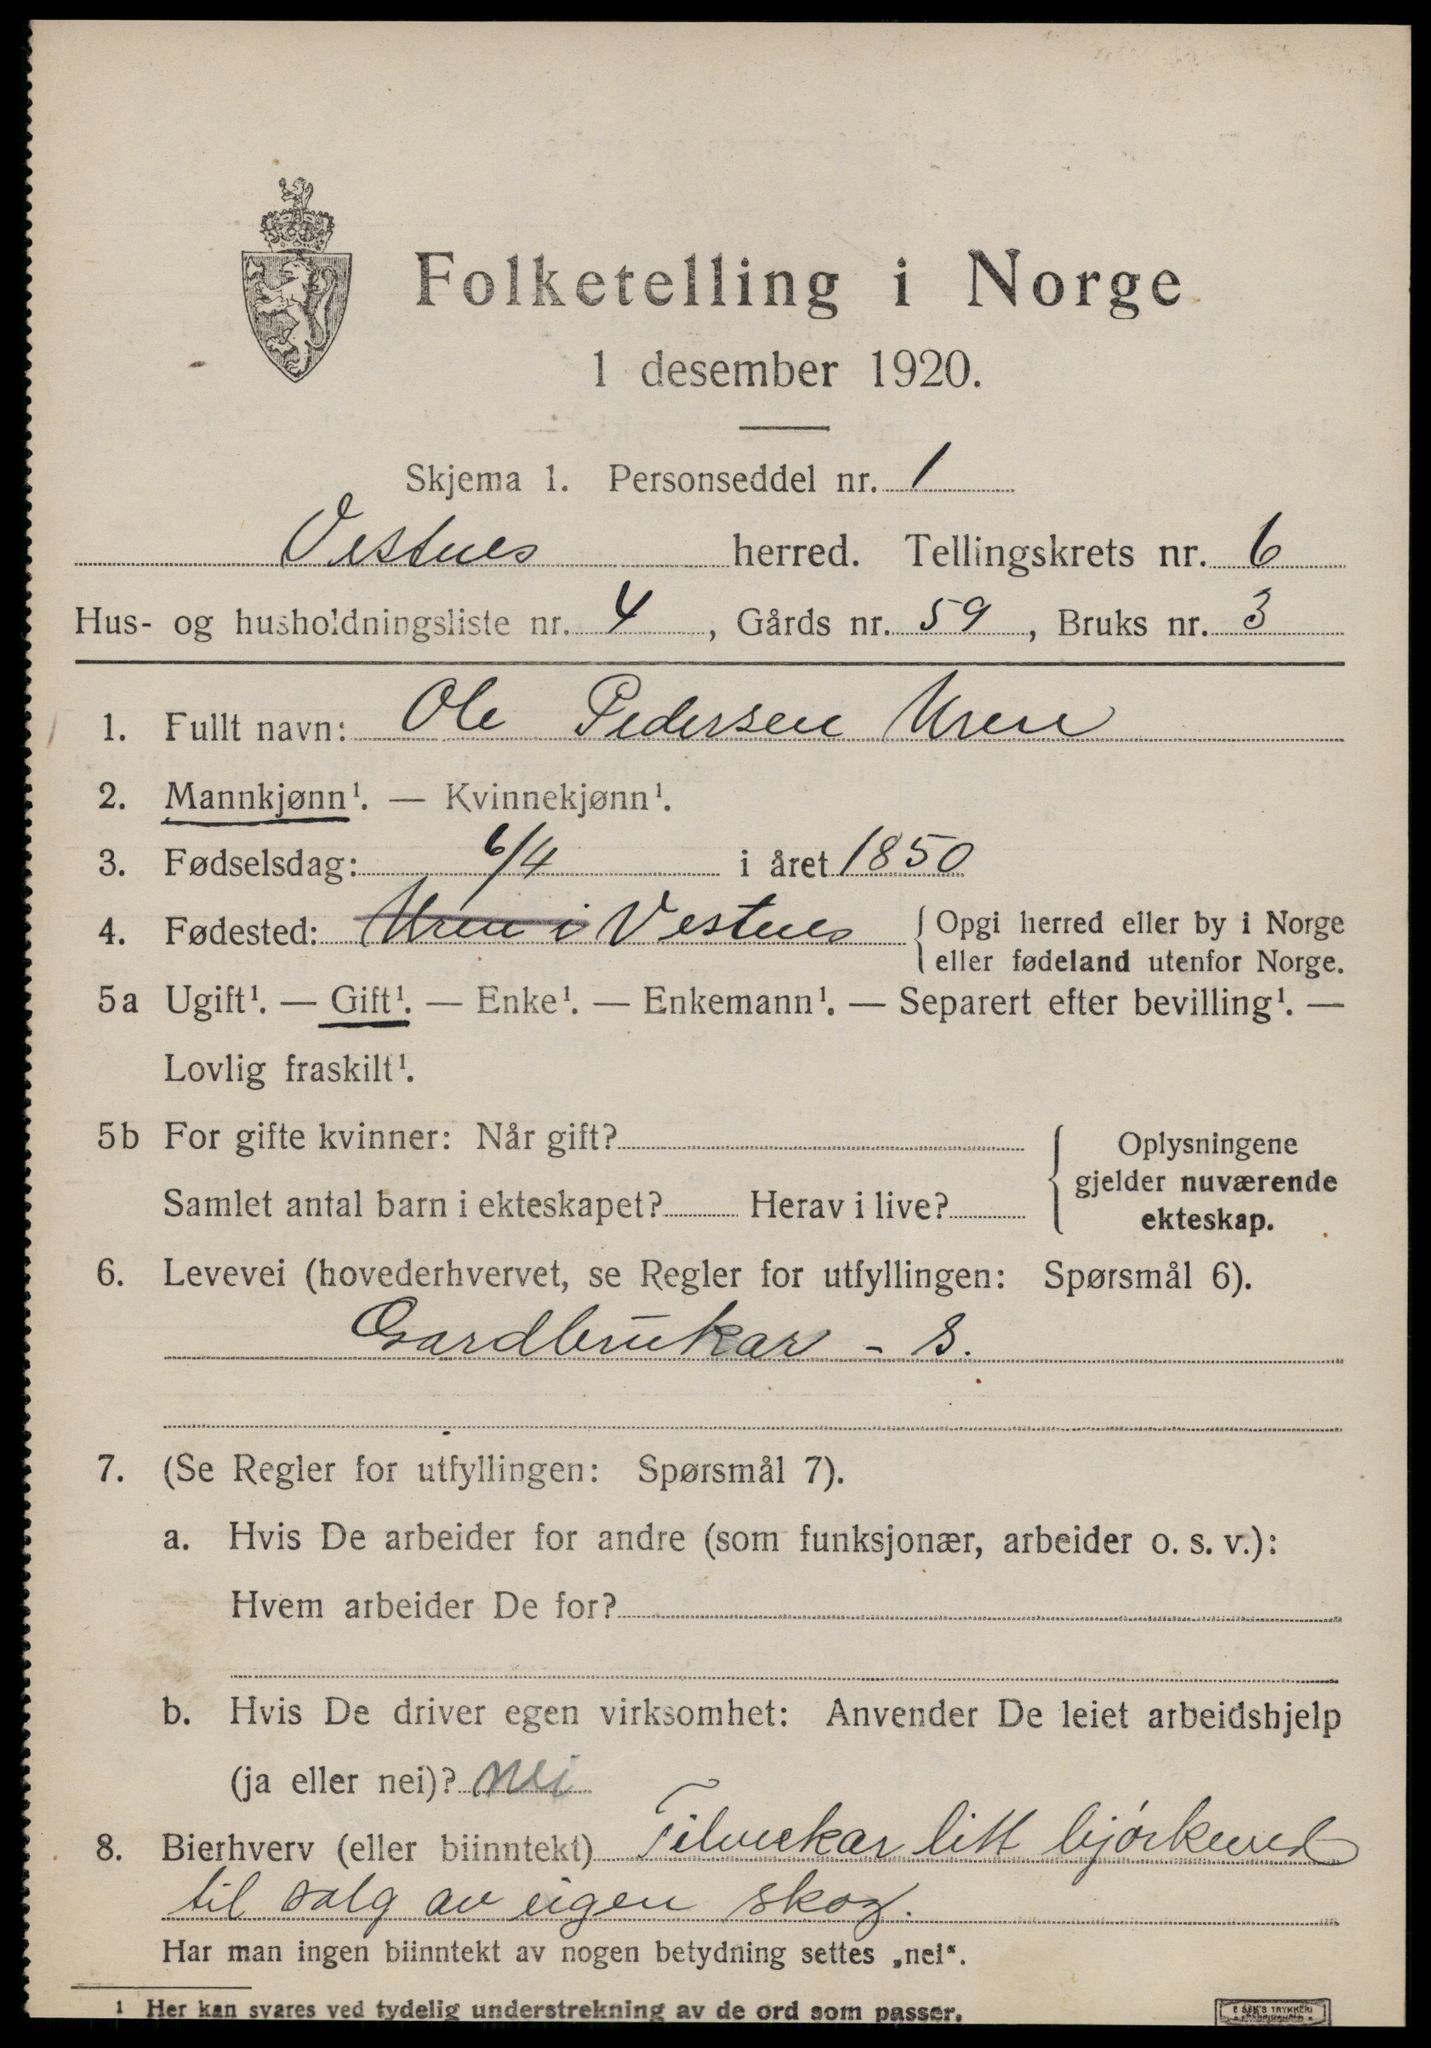 Folketelling i Norge
1 desember 1920.
Skjema 1. Personseddel nr. 1
Vestnes herred. Tellingskrets nr. 6
Hus- og husholdningsliste nr. 4, Gårds nr. 59, Bruks nr. 3
1. Fullt navn: Ole Pedersen Uren
2. Mannkjønn¹. — Kvinnekjønn¹.
3. Fødselsdag: 6/4 i året 1850
4. Fødested: Uren i Vestnes { Opgi herred eller by i Norge
eller fødeland utenfor Norge.
5a Ugift¹. — Gift¹. — Enke¹. — Enkemann¹. — Separert efter bevilling¹. —
Lovlig fraskilt¹.
5b For gifte kvinner: Når gift?
Samlet antal barn i ekteskapet? Herav i live?
Oplysningene
gjelder nuværende
ekteskap.
6. Levevei (hovederhvervet, se Regler for utfyllingen: Spørsmål 6).
Gardbrukar - s.
7. (Se Regler for utfyllingen: Spørsmål 7).
a. Hvis De arbeider for andre (som funksjonær, arbeider o. s. v.):
Hvem arbeider De for?
b. Hvis De driver egen virksomhet: Anvender De leiet arbeidshjelp
(ja eller nei)? nei
8. Bierhverv (eller biinntekt) Tilvirkar litt bjørkeved
til salg av eigen skog.
Har man ingen biinntekt av nogen betydning settes „nei“.
1 Her kan svares ved tydelig understrekning av de ord som passer.